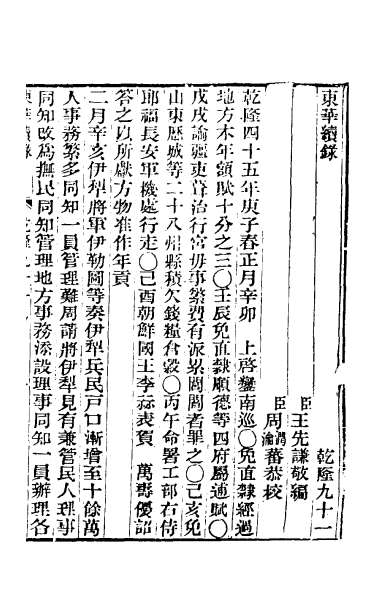 東華續錄
乾隆九十一
臣王先謙敬編
臣周潤蕃恭校
周瀹蕃恭校
乾隆四十五年庚子春正月辛卯　上啓鑾南巡〇免直隸經過
地方本年額賦十分之三〇壬辰免直隸順德等四府屬逋賦〇
戊戌諭疆吏葺治行宮毋事繁費有派累閭閻者罪之〇己亥免
山東歷城等二十八州縣積欠錢糧倉穀〇丙午命署工部右侍
郎福長安軍機處行走〇己酉朝鮮國王李祘表賀　萬壽優詔
答之以所獻方物准作年貢
二月辛亥伊犂將軍伊勒圖等奏伊犂兵民戶口漸增至十餘萬
人事務繁多同知一員管理難周請將伊犂見有兼管民人理事
同知改爲撫民同知管理地方事務添設理事同知一員辦理各